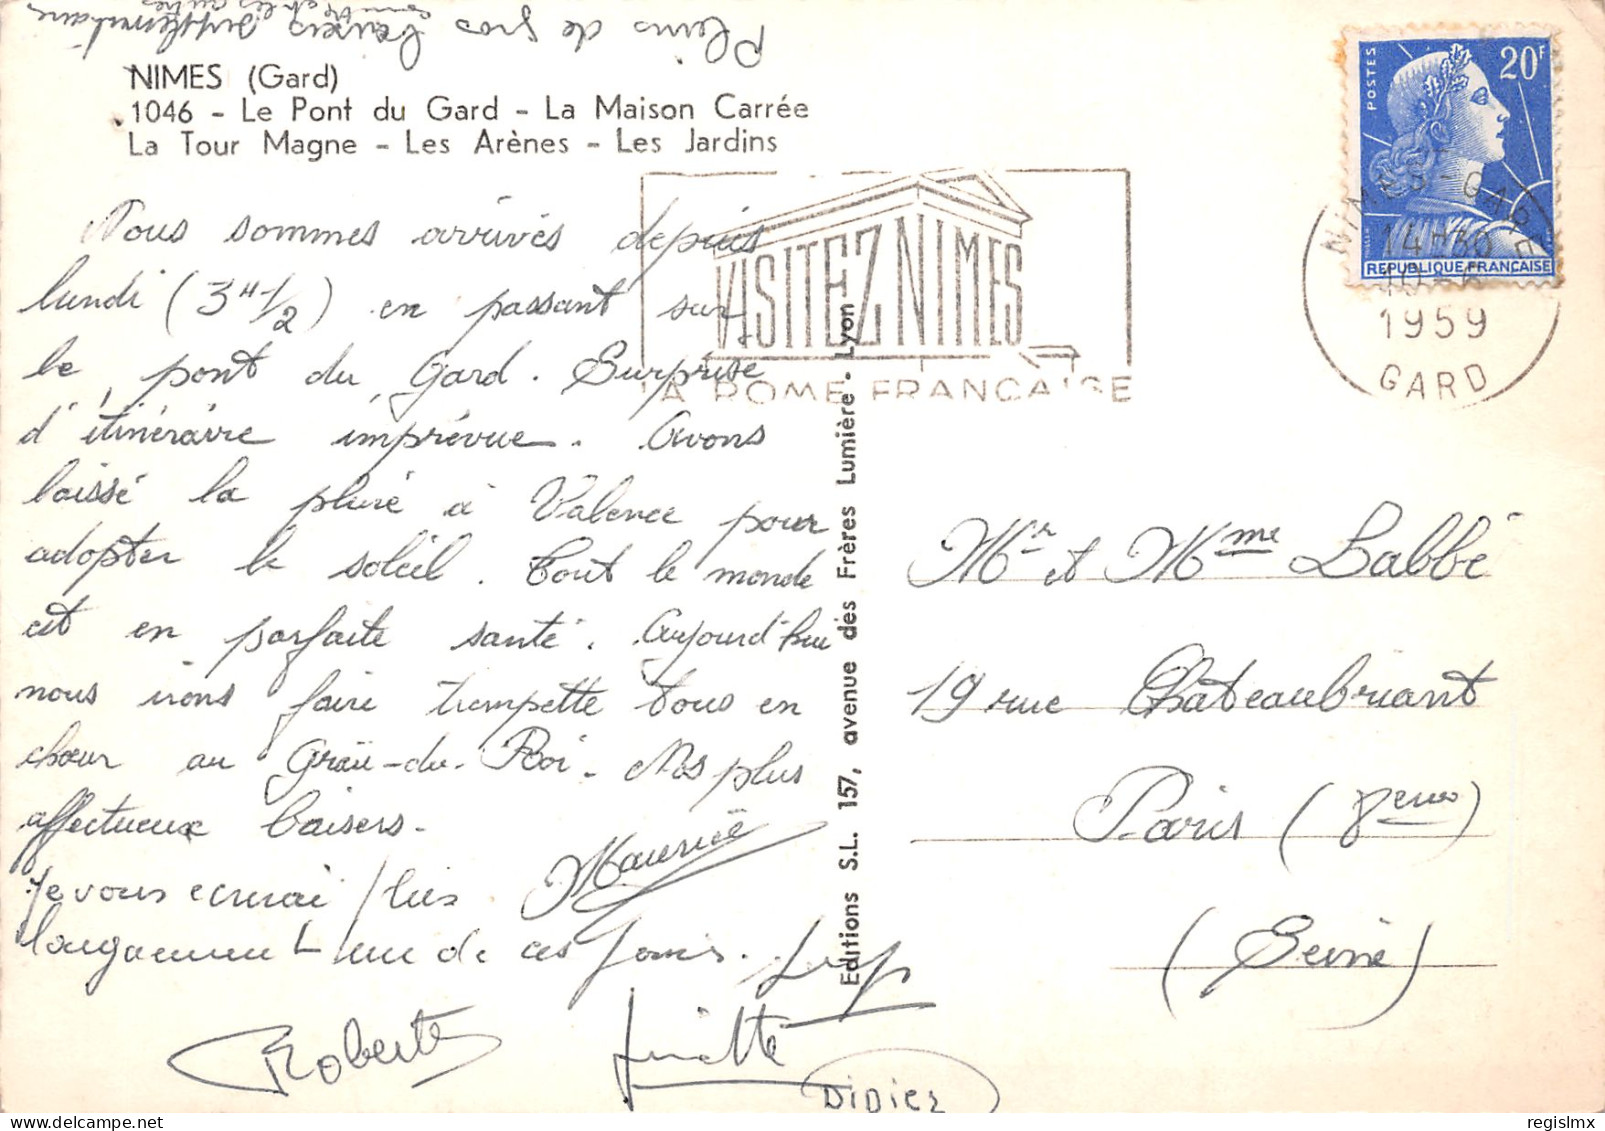 Pleins de gros baisers supplémentaires
NIMES (Gard)
1046 - Le Pont du Gard - La Maison Carrée
La Tour Magne - Les Arènes - Les Jardins
Nous sommes arrivés depuis
lundi (3H 1/2) en passant sur
le pont du Gard. Surprise
d'itinéraire imprévue. Avons
laissé la pluie à Valence pour
adopter le soleil. Tout le monde
est en parfaite santé. Aujourd'hui
nous irons faire trempette tous en
chœur au Graü-du-Roi. Nos plus
affectueux baisers.
Maurice
Je vous ecrirai plus
longuement un de ces jours.
Roberte
Didier
Editions S.L. 157, avenue des Frères Lumière - Lyon
VISITEZ NIMES
LA ROME FRANCAISE
POSTES
20F
REPUBLIQUE FRANÇAISE
NIMES-GARE
14H30
1959
GARD
Mr et Mme Labbé
19 rue Châteaubriant
Paris (8eme)
(Seine)
regislmx